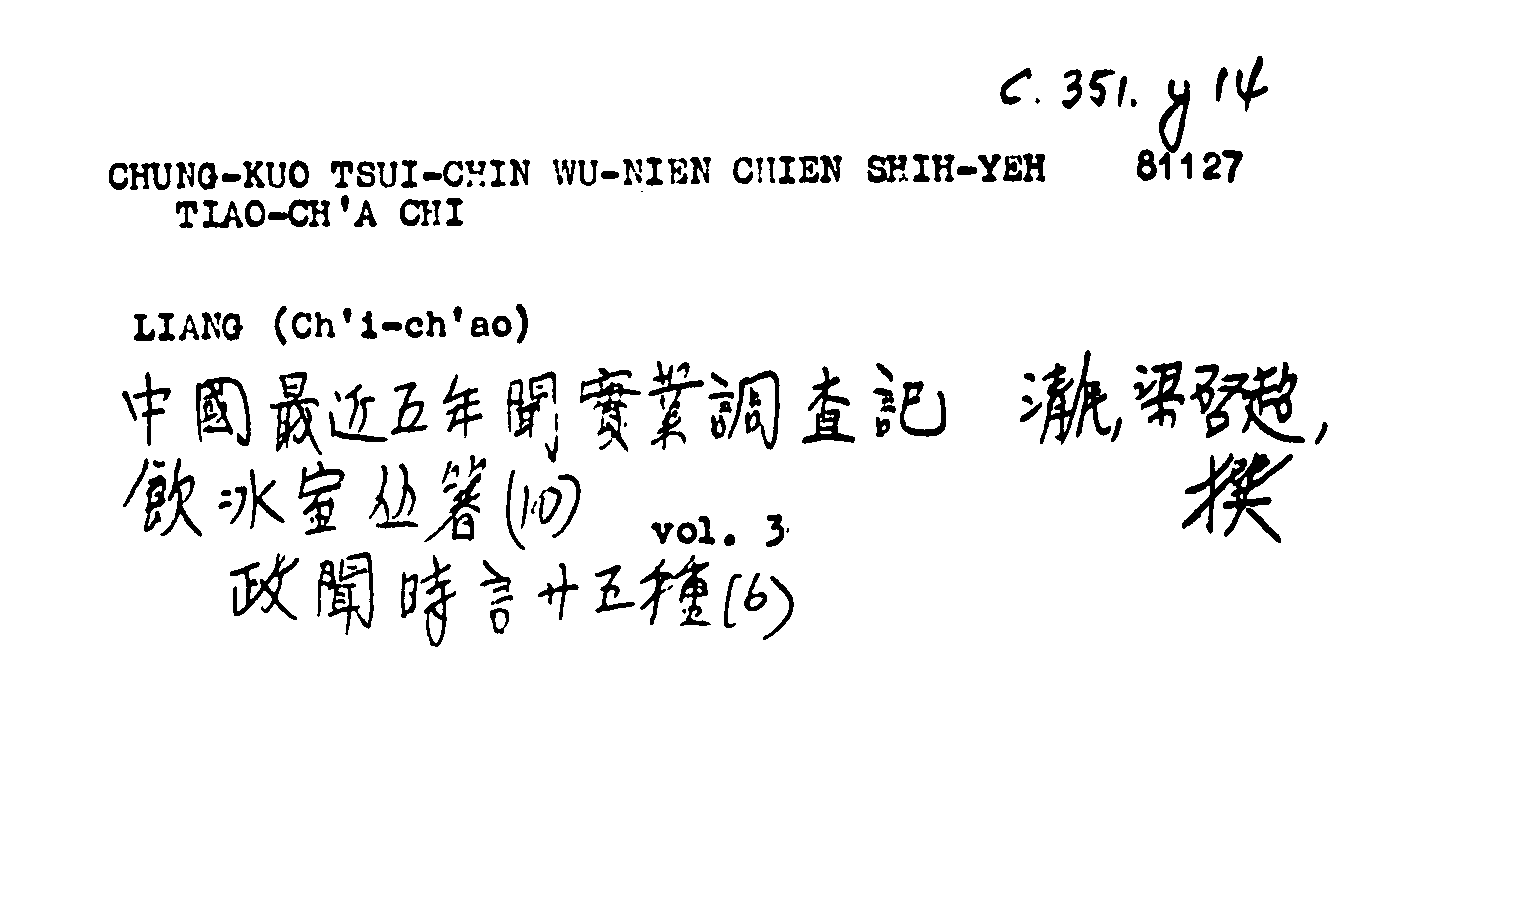 C. 351. y 14
CHUNG-KUO TSUI-CHIN WU-NIEN CHIEN SHIH-YEH 81127
TIAO-CH'A CHI
LIANG (Ch'i-ch'ao)
中國最近五年聞實業調查記 清民, 梁啓超,
飲冰室丛著(10) 撰
vol. 3
政聞時言廿五種(6)